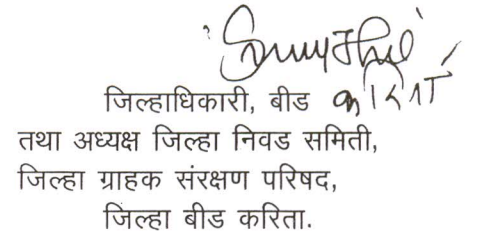 जिल्हाधिकारी, बीड करिता
तथा अध्यक्ष जिल्हा निवड समिती,
जिल्हा ग्राहक संरक्षण परिषद,
जिल्हा बीड करिता.